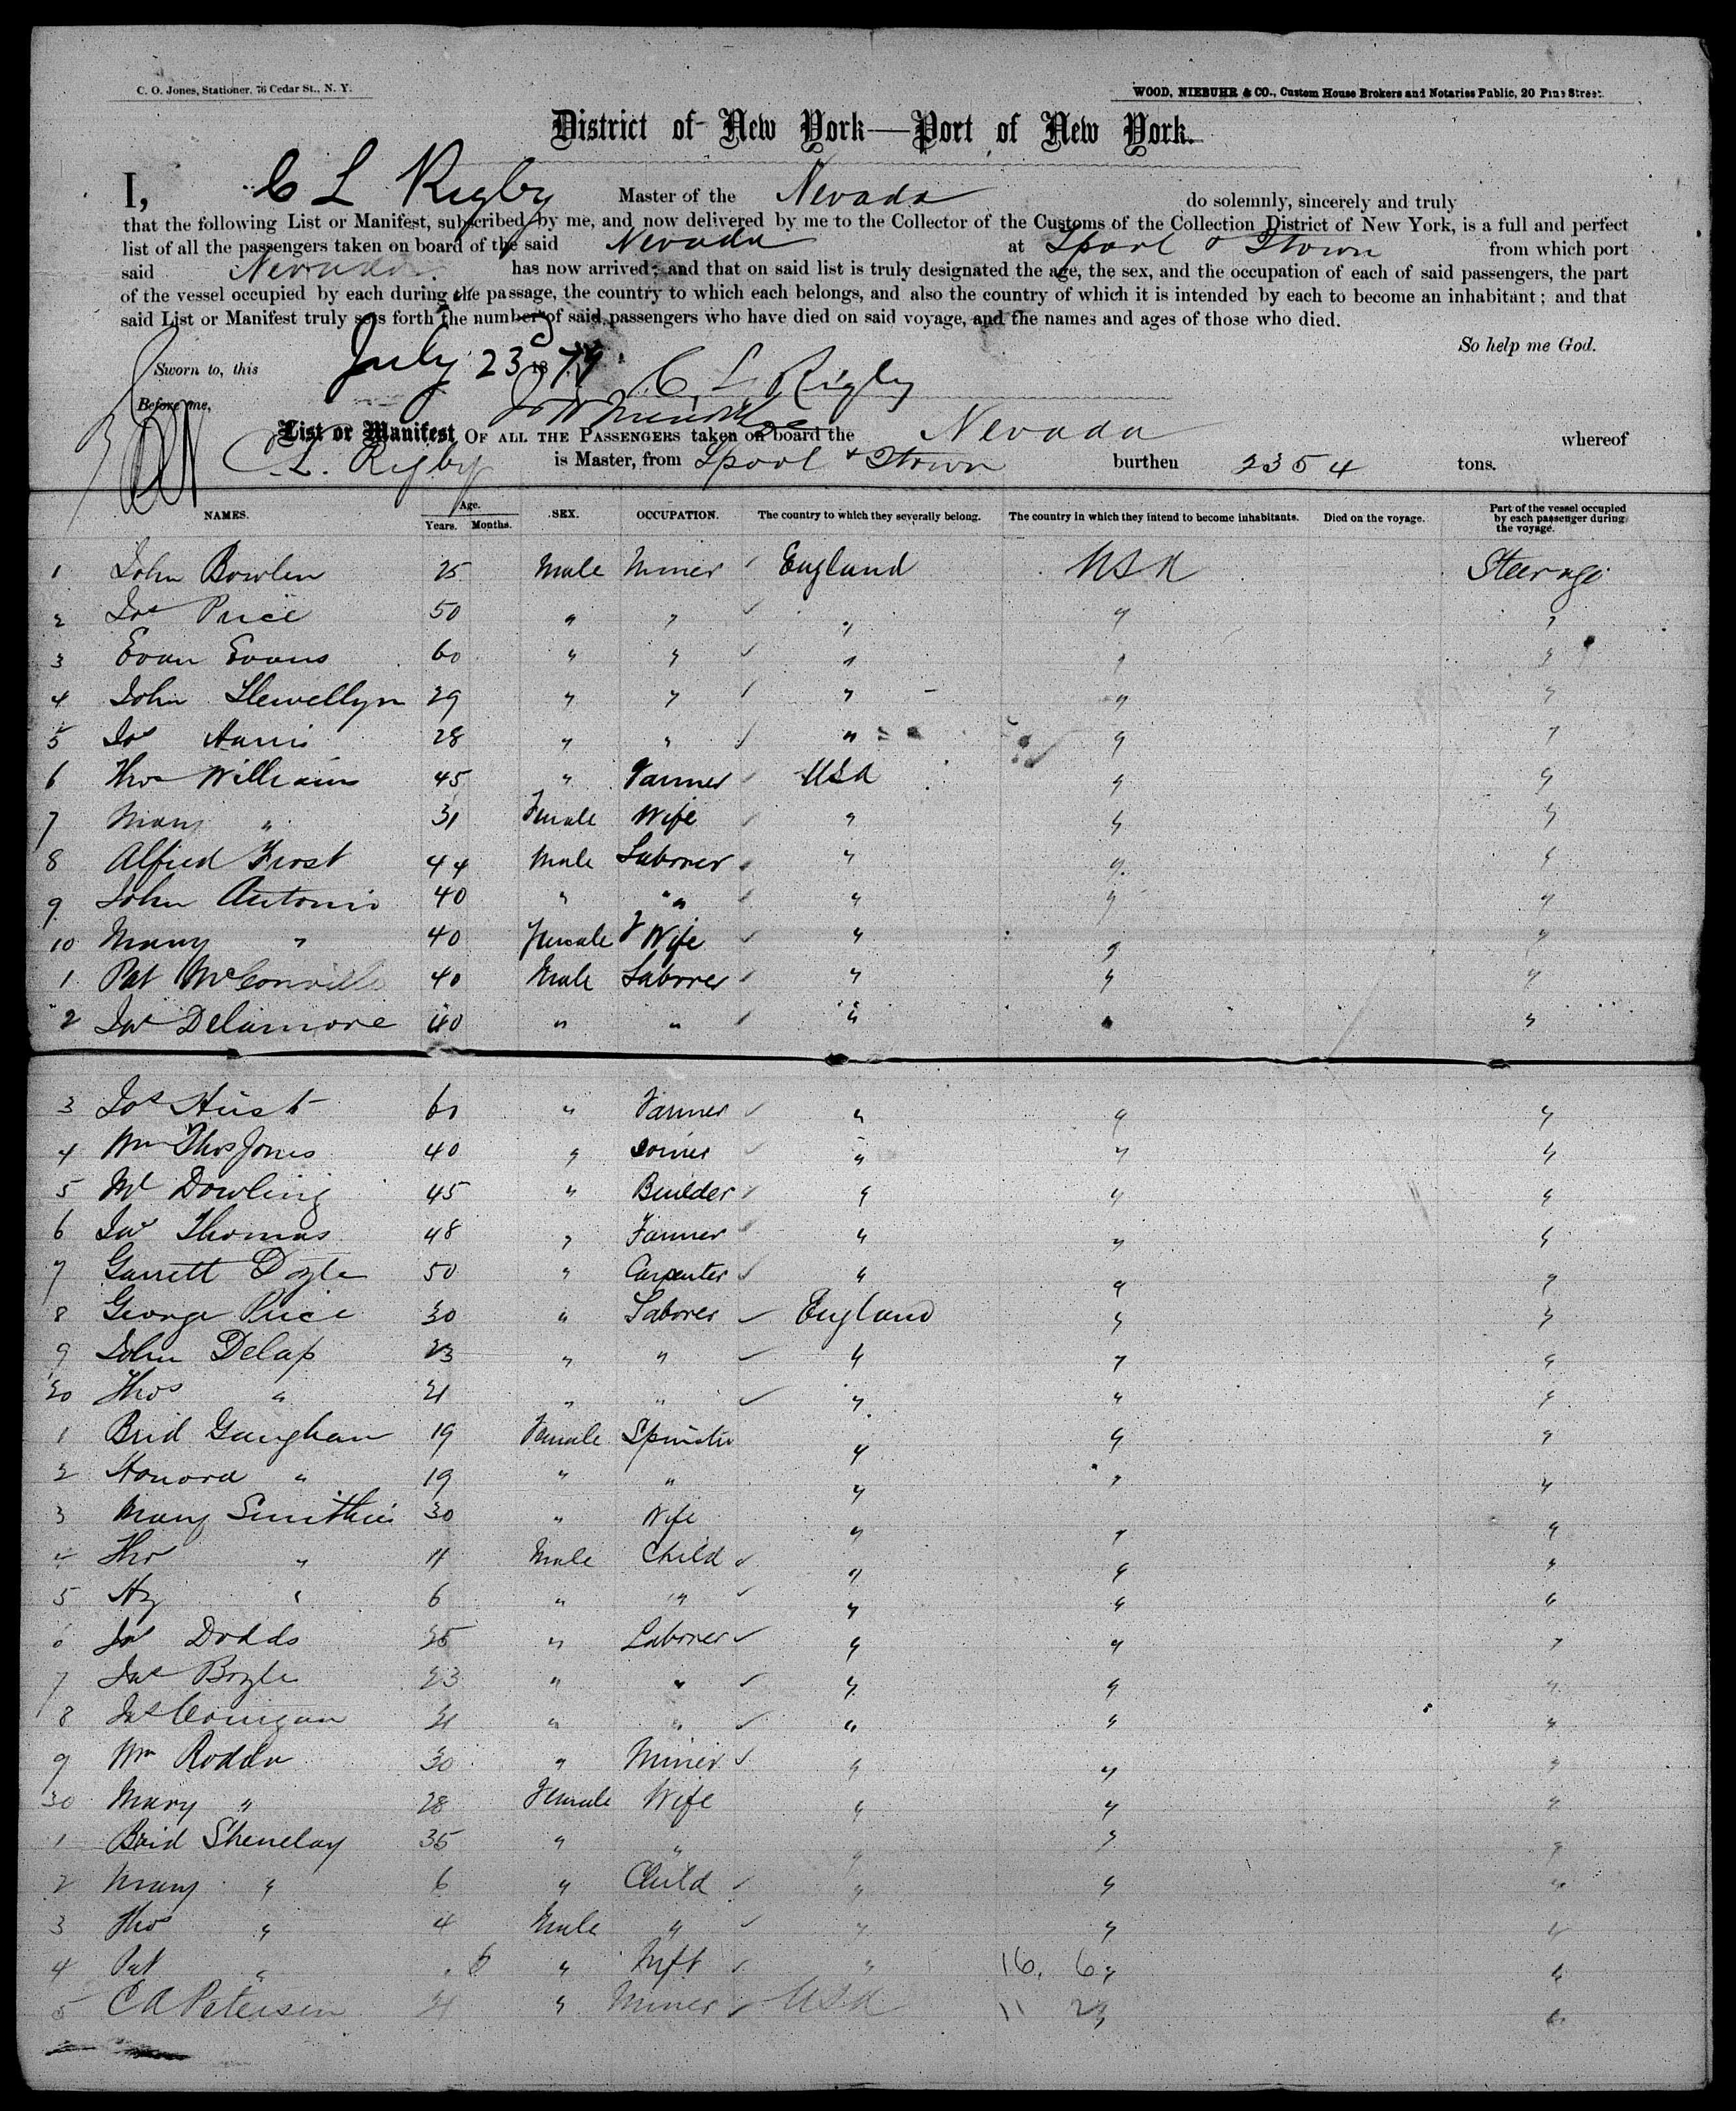 C. O. Jones, Stationer, 76 Cedar St., N. Y.
WOOD, NIEBUHR & CO., Custom House Brokers and Notaries Public, 20 Pine Street.
District of New York—Port of New York.
I, C L Rigby Master of the Nevada do solemnly, sincerely and truly
that the following List or Manifest, subscribed by me, and now delivered by me to the Collector of the Customs of the Collection District of New York, is a full and perfect
list of all the passengers taken on board of the said Nevada at Lpool & Qtown from which port
said Nevada has now arrived; and that on said list is truly designated the age, the sex, and the occupation of each of said passengers, the part
of the vessel occupied by each during the passage, the country to which each belongs, and also the country of which it is intended by each to become an inhabitant; and that
said List or Manifest truly sets forth the number of said passengers who have died on said voyage, and the names and ages of those who died.
So help me God.
Sworn to, this July 23 1879 C L Rigby
Before me,
List or Manifest OF ALL THE PASSENGERS taken on board the Nevada whereof
C. L. Rigby is Master, from Lpool & Qtown burthen 2354 tons.
NAMES. Age. Years. Months. SEX. OCCUPATION. The country to which they severally belong. The country in which they intend to become inhabitants. Died on the voyage. Part of the vessel occupied by each passenger during the voyage.
1 John Bowlen 25 Male Miner England USA Steerage
2 Jos Price 50 " " " " "
3 Evan Evans 60 " " " " "
4 John Llewellyn 29 " " " " "
5 Jos Harris 28 " " " " "
6 Thos Williams 45 " Farmer USA " "
7 Mary " 31 Female Wife " " "
8 Alfred Frost 44 Male Laborer " " "
9 John Antonio 40 " " " " "
10 Mary " 40 Female Wife " " "
1 Pat McConville 40 Male Laborer " " "
2 Jas Delamore 40 " " " " "
3 Jos Hirst 60 " Farmer " " "
4 Wm Thos Jones 40 " Joiner " " "
5 Ml Dowling 45 " Builder " " "
6 Jas Thomas 48 " Farmer " " "
7 Garrett Doyle 50 " Carpenter " " "
8 George Price 30 " Laborer England " "
9 John Delap 23 " " " " "
20 Thos " 21 " " " " "
1 Brid Gaughan 19 Female Spinster " " "
2 Honora " 19 " " " " "
3 Mary Smithies 30 " Wife " " "
4 Thos " 11 Male Child " " "
5 Hy " 6 " " " " "
6 Js Dodds 25 " Laborer " " "
7 Jas Boyle 23 " " " " "
8 Jas Corrigan 21 " " " " "
9 Wm Rodda 30 " Miner " " "
30 Mary " 28 Female Wife " " "
1 Brid Shenelay 35 " " " " "
2 Mary " 6 " Child " " "
3 Thos " 4 Male " " " "
4 Pat " 6 " Inft " 16. 6 " "
5 C A Petersen 21 " Miner USA 11 2 " "